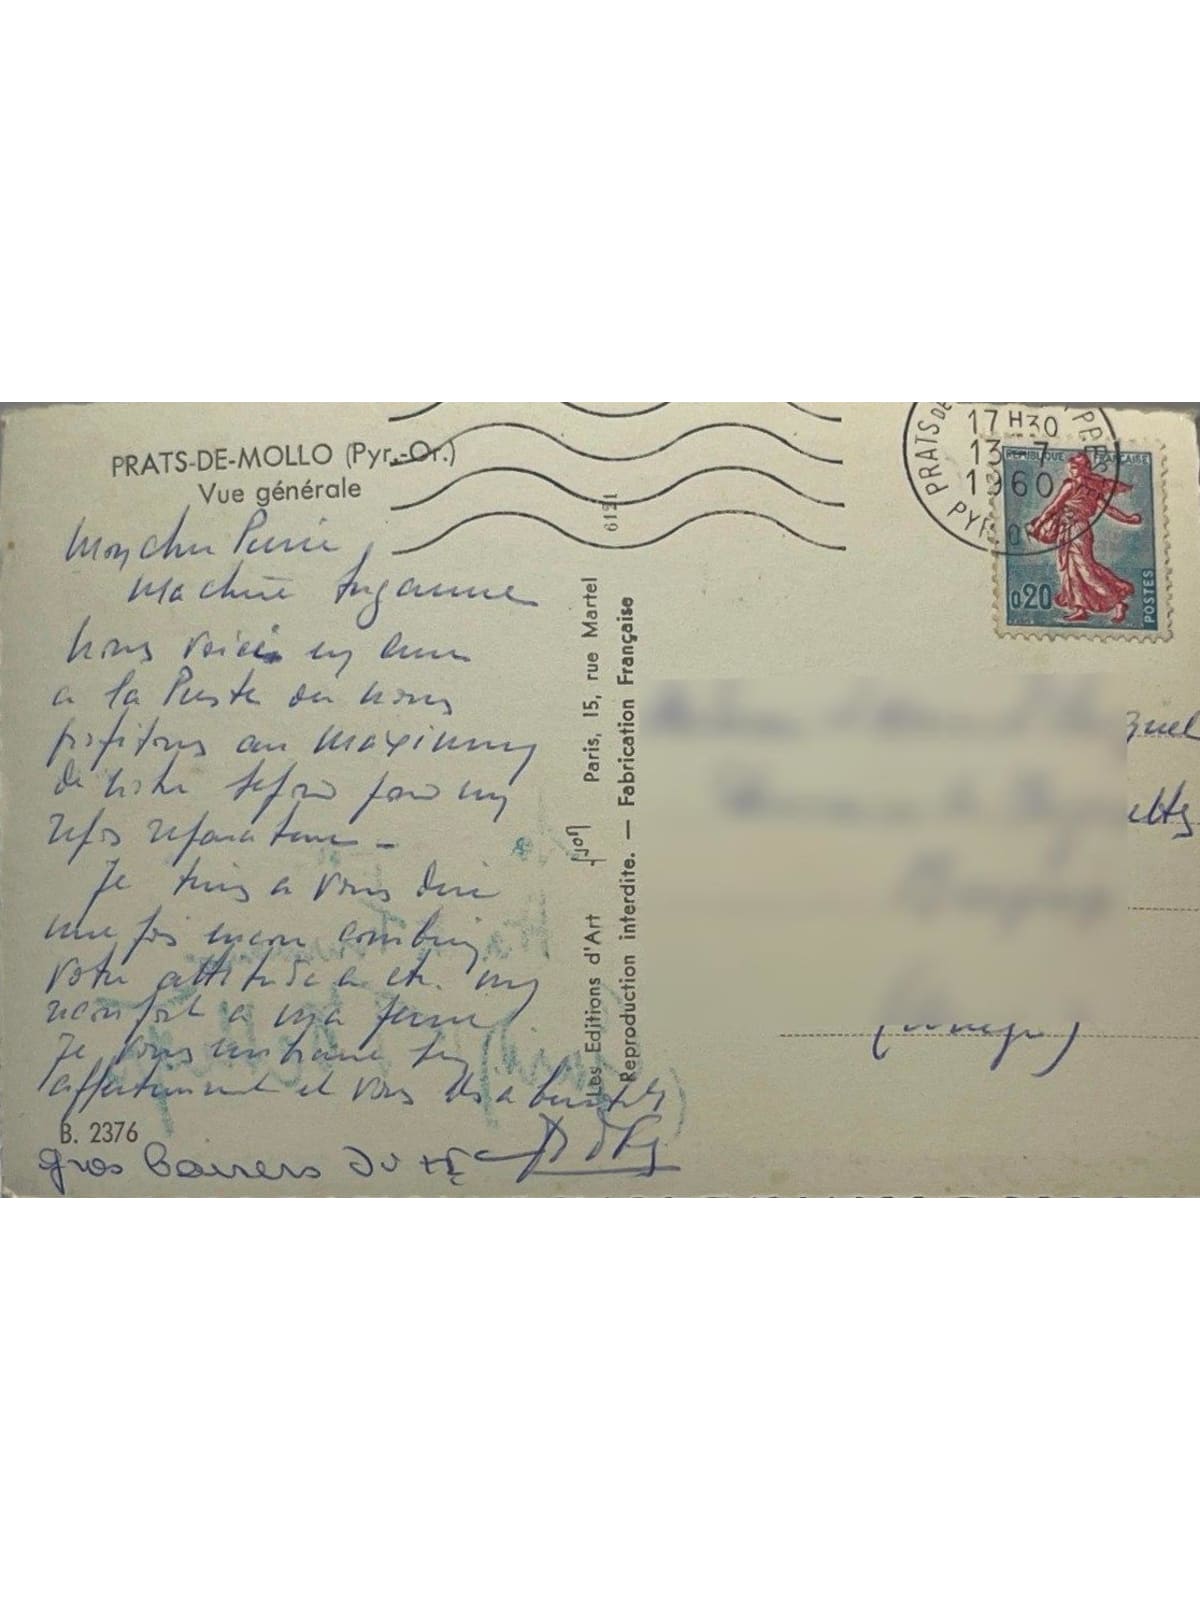 PRATS-DE-MOLLO (Pyr.-Or.)
Vue générale
Mon cher Pierre,
Ma chère Suzanne
Nous voici en cure
a la Preste ou nous
profitons au maximum
de notre sejour pour un
repos reparateur -
Je tiens a vous dire
une fois encore combien
votre attitude a ete un
reconfort a ma femme
Je vous embrasse
affectueusement et vous dis a bientot
gros baisers
B. 2376
6151
Les Editions d'Art YVON Paris, 15, rue Martel
Reproduction interdite. — Fabrication Française
17 H30
13-7
1960
PRATS DE
PYR
RÉPUBLIQUE FRANÇAISE
0,20
POSTES